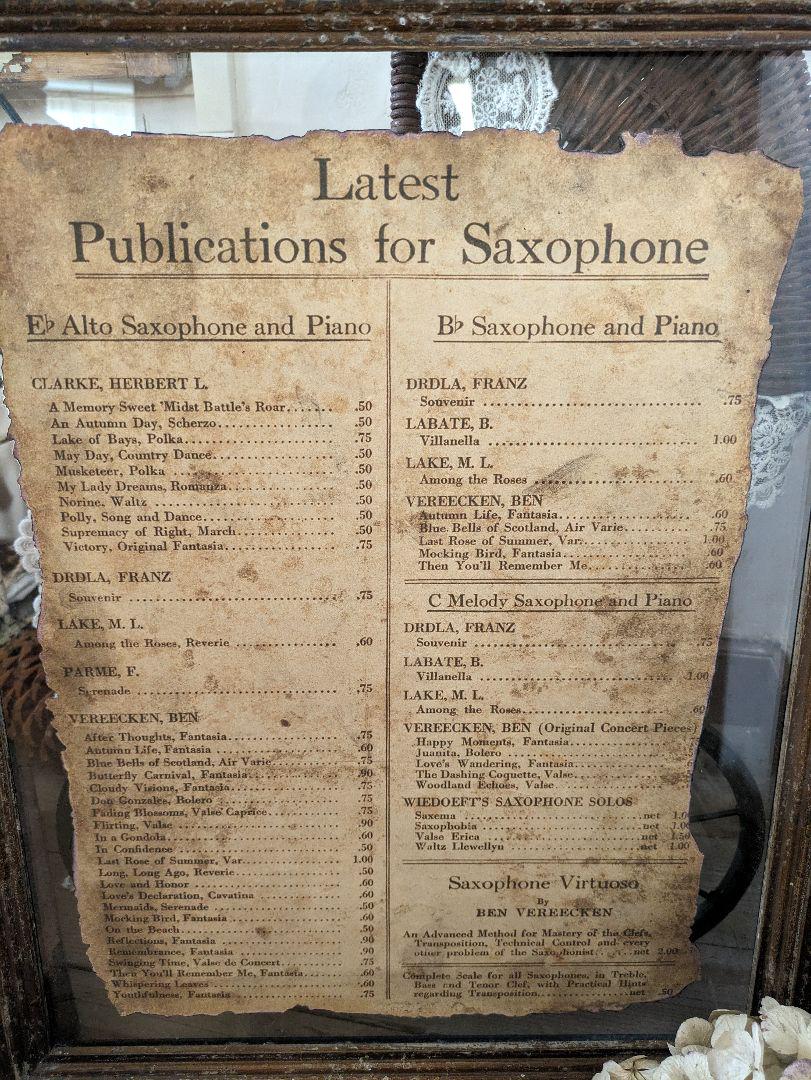 Latest
Publications for Saxophone
E♭ Alto Saxophone and Piano
CLARKE, HERBERT L.
A Memory Sweet 'Midst Battle's Roar....... .50
An Autumn Day, Scherzo.................. .50
Lake of Bays, Polka....................... .75
May Day, Country Dance................... .50
Musketeer, Polka ......................... .50
My Lady Dreams, Romanza................. .50
Norine, Waltz ............................ .50
Polly, Song and Dance.................... .50
Supremacy of Right, March............... .50
Victory, Original Fantasia................. .75
DRDLA, FRANZ
Souvenir ................................ .75
LAKE, M. L.
Among the Roses, Reverie ................ .60
PARME, F.
Serenade ................................ .75
VEREECKEN, BEN
After Thoughts, Fantasia.................. .75
Autumn Life, Fantasia .................... .60
Blue Bells of Scotland, Air Varie........... .75
Butterfly Carnival, Fantasia................ .90
Cloudy Visions, Fantasia................... .75
Don Gonzales, Bolero ..................... .75
Fading Blossoms, Valse Caprice............. .75
Flirting, Valse ............................ .90
In a Gondola.............................. .60
In Confidence ............................ .50
Last Rose of Summer, Var................. 1.00
Long, Long Ago, Reverie................... .50
Love and Honor .......................... .60
Love's Declaration, Cavatina ............... .60
Mermaids, Serenade ...................... .50
Mocking Bird, Fantasia.................... .60
On the Beach............................. .50
Reflections, Fantasia ...................... .90
Remembrance, Fantasia ................... .90
Swinging Time, Valse de Concert............ .75
Then You'll Remember Me, Fantasia......... .60
Whispering Leaves ........................ .60
Youthfulness, Fantasia..................... .75
B♭ Saxophone and Piano
DRDLA, FRANZ
Souvenir ................................ .75
LABATE, B.
Villanella ............................... 1.00
LAKE, M. L.
Among the Roses ........................ .60
VEREECKEN, BEN
Autumn Life, Fantasia.................... .60
Blue Bells of Scotland, Air Varie........... .75
Last Rose of Summer, Var................. 1.00
Mocking Bird, Fantasia................... .60
Then You'll Remember Me................ .60
C Melody Saxophone and Piano
DRDLA, FRANZ
Souvenir ................................ .75
LABATE, B.
Villanella ............................... 1.00
LAKE, M. L.
Among the Roses........................ .60
VEREECKEN, BEN (Original Concert Pieces)
Happy Moments, Fantasia.................
Juanita, Bolero ..........................
Love's Wandering, Fantasia...............
The Dashing Coquette, Valse..............
Woodland Echoes, Valse..................
WIEDOEFT'S SAXOPHONE SOLOS
Saxema ............................net 1.0
Saxophobia ........................net 1.00
Valse Erica ........................net 1.50
Waltz Llewellyn ....................net 1.00
Saxophone Virtuoso
By
BEN VEREECKEN
An Advanced Method for Mastery of the Clefs,
Transposition, Technical Control and every
other problem of the Saxophonist.......net 2.00
Complete Scale for all Saxophones, in Treble,
Bass and Tenor Clef, with Practical Hints
regarding Transposition...............net .50